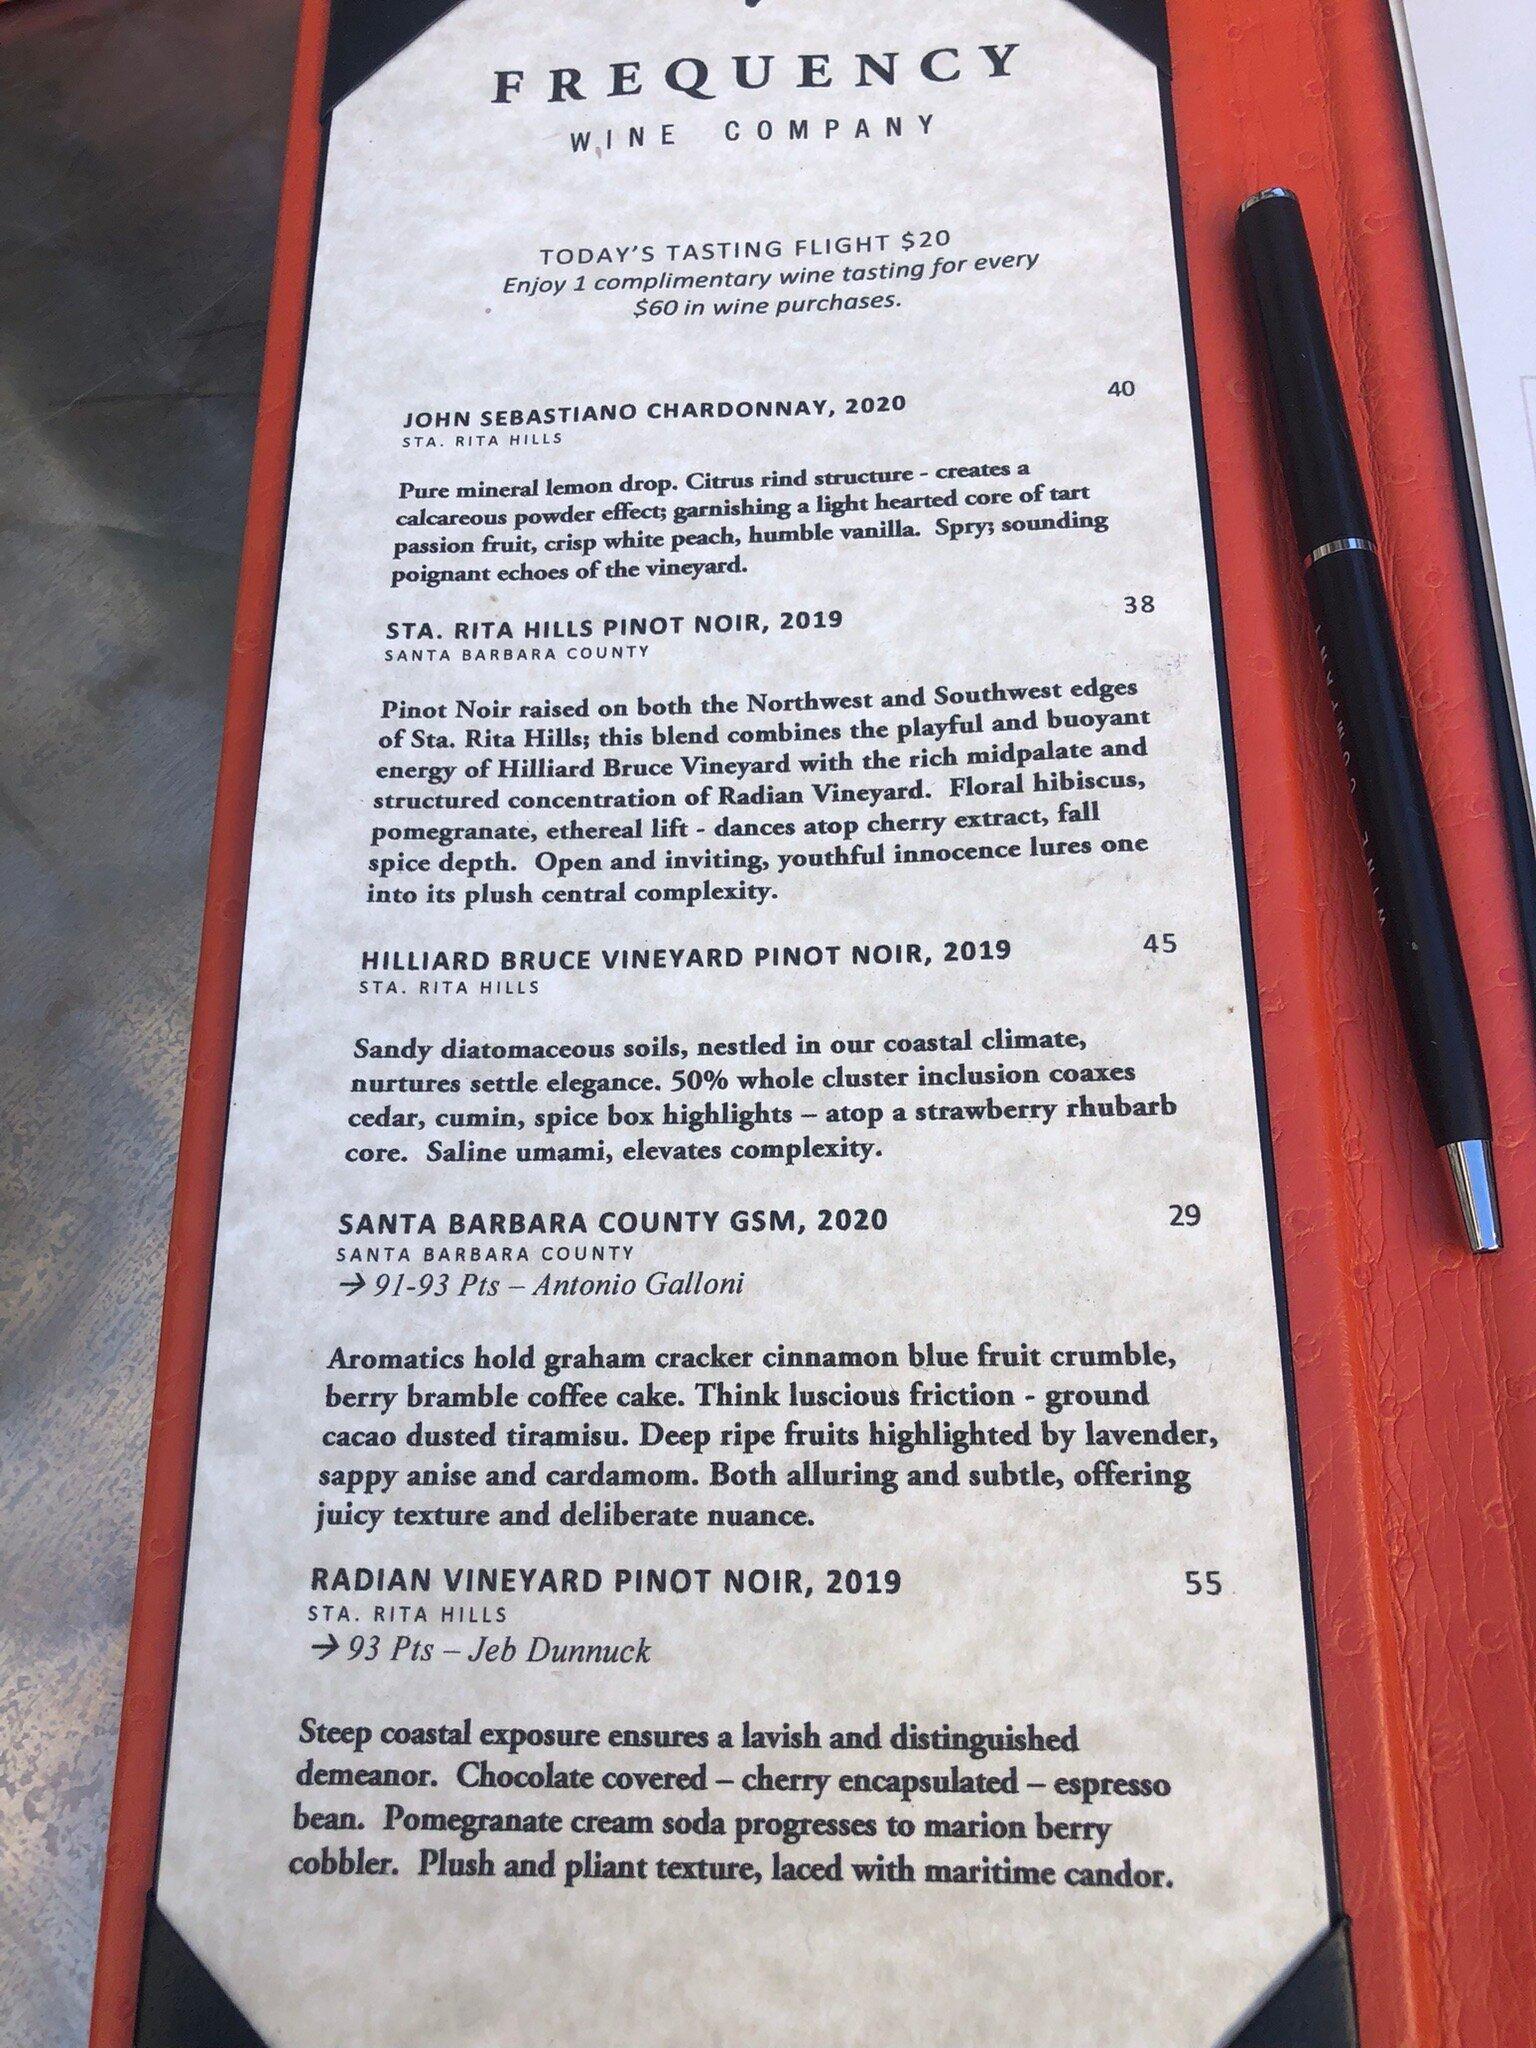 FREQUENCY
WINE COMPANY
TODAY'S TASTING FLIGHT $20
Enjoy 1 complimentary wine tasting for every
$60 in wine purchases.
JOHN SEBASTIANO CHARDONNAY, 2020 40
STA. RITA HILLS
Pure mineral lemon drop. Citrus rind structure - creates a
calcareous powder effect; garnishing a light hearted core of tart
passion fruit, crisp white peach, humble vanilla. Spry; sounding
poignant echoes of the vineyard.
STA. RITA HILLS PINOT NOIR, 2019 38
SANTA BARBARA COUNTY
Pinot Noir raised on both the Northwest and Southwest edges
of Sta. Rita Hills; this blend combines the playful and buoyant
energy of Hilliard Bruce Vineyard with the rich midpalate and
structured concentration of Radian Vineyard. Floral hibiscus,
pomegranate, ethereal lift - dances atop cherry extract, fall
spice depth. Open and inviting, youthful innocence lures one
into its plush central complexity.
HILLIARD BRUCE VINEYARD PINOT NOIR, 2019 45
STA. RITA HILLS
Sandy diatomaceous soils, nestled in our coastal climate,
nurtures settle elegance. 50% whole cluster inclusion coaxes
cedar, cumin, spice box highlights – atop a strawberry rhubarb
core. Saline umami, elevates complexity.
SANTA BARBARA COUNTY GSM, 2020 29
SANTA BARBARA COUNTY
→ 91-93 Pts – Antonio Galloni
Aromatics hold graham cracker cinnamon blue fruit crumble,
berry bramble coffee cake. Think luscious friction - ground
cacao dusted tiramisu. Deep ripe fruits highlighted by lavender,
sappy anise and cardamom. Both alluring and subtle, offering
juicy texture and deliberate nuance.
RADIAN VINEYARD PINOT NOIR, 2019 55
STA. RITA HILLS
→ 93 Pts – Jeb Dunnuck
Steep coastal exposure ensures a lavish and distinguished
demeanor. Chocolate covered – cherry encapsulated – espresso
bean. Pomegranate cream soda progresses to marion berry
cobbler. Plush and pliant texture, laced with maritime candor.
WINE